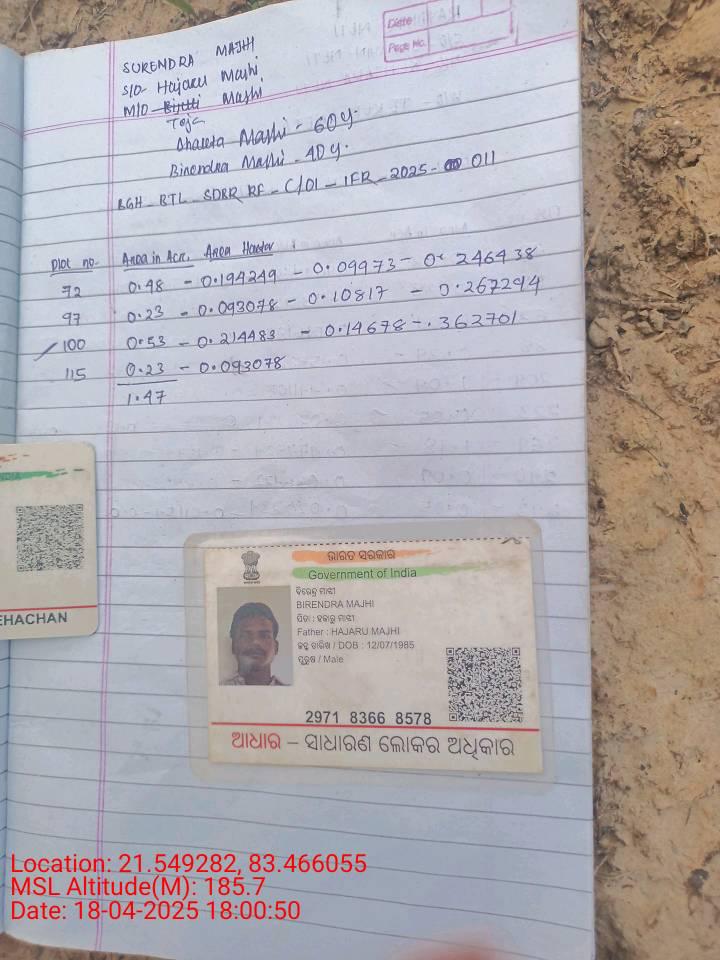 Date
Page No.
SURENDRA MAJHI
S/O- Hajaru Majhi
M/O- Majhi
Majhi - 60y
Birendra Majhi - 40 y.
BGH_BTL_SDBR RF - C/01 - IFR - 2025 - 011
Plot no. Area in Acr. Area Hactor
72 0.48 - 0.194249 - 0.09973 - 0. 246438
97 0.23 - 0.093078 - 0.10817 - 0.267294
100 0.53 - 0.214483 - 0.14678 - .362701
115 0.23 - 0.093078
1.47
EHACHAN
ଭାରତ ସରକାର
Government of India
ବିରେନ୍ଦ୍ର ମାଝୀ
BIRENDRA MAJHI
ପିତା : ହଜାରୁ ମାଝୀ
Father : HAJARU MAJHI
ଜନ୍ମ ତାରିଖ / DOB : 12/07/1985
ପୁରୁଷ / Male
2971 8366 8578
ଆଧାର – ସାଧାରଣ ଲୋକର ଅଧିକାର
Location: 21.549282, 83.466055
MSL Altitude(M): 185.7
Date: 18-04-2025 18:00:50